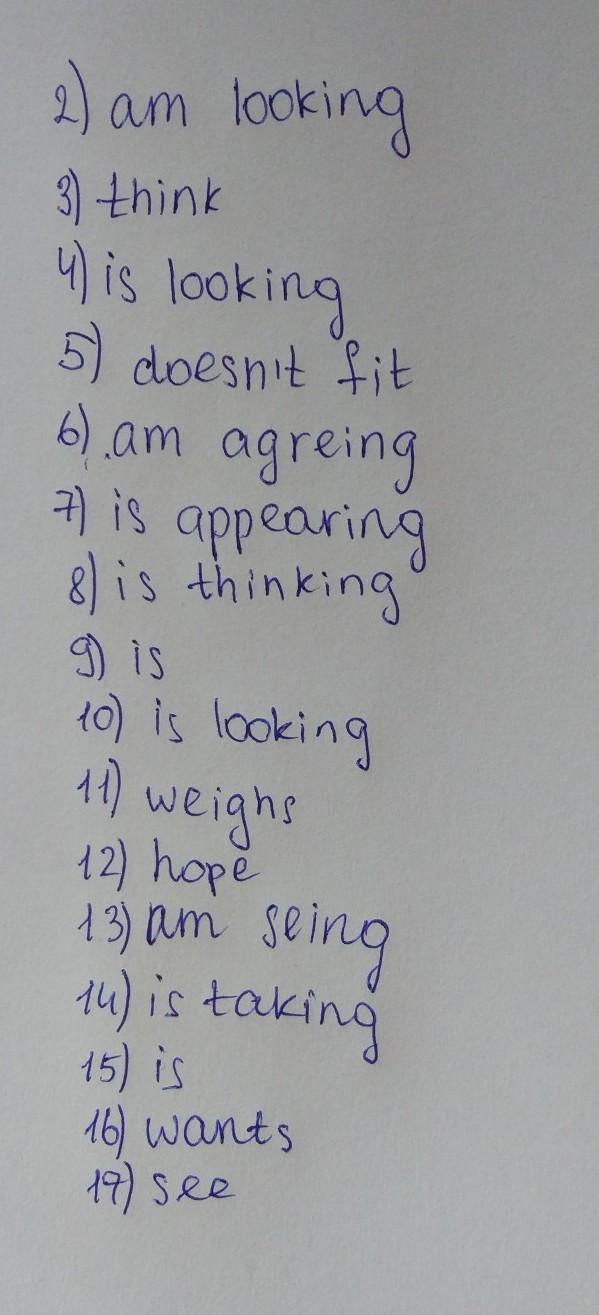 2) am looking
3) think
4) is looking
5) doesn't fit
6) am agreing
7) is appearing
8) is thinking
9) is
10) is looking
11) weighs
12) hope
13) am seing
14) is taking
15) is
16) wants
17) see